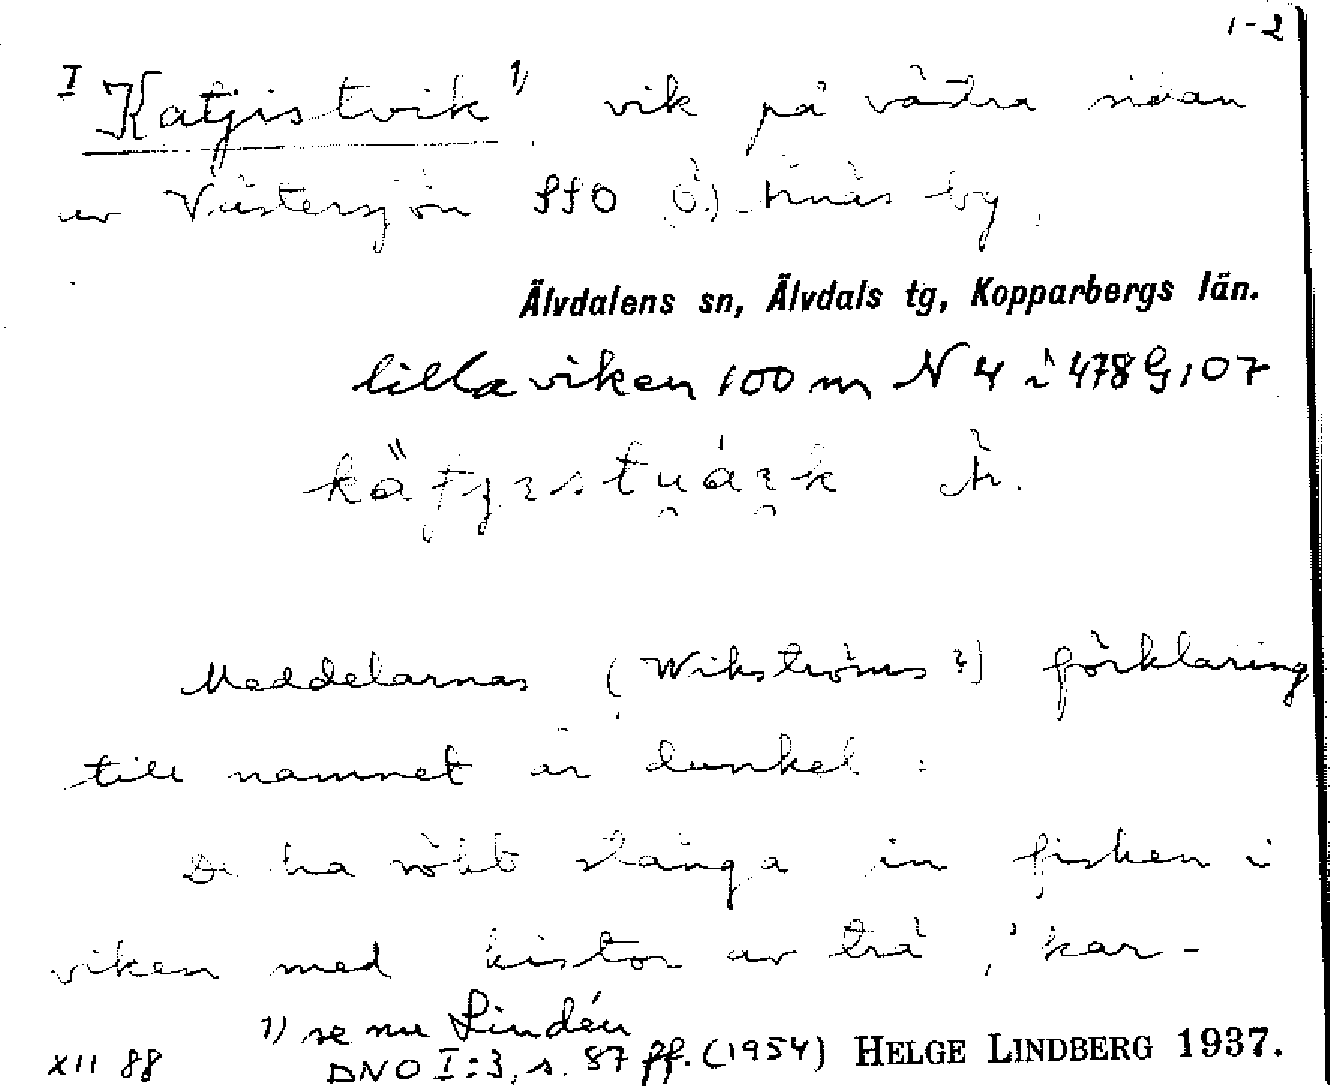 1-2
I Katjistvik 1) vik på västra sidan
av Västersjön SSO Ö.) -näs by.
Älvdalens sn, Älvdals tg, Kopparbergs län.
lilla viken 100 m N 4 i 478 G, 07
Meddelarnas (Wikströms?) förklaring
till namnet är dunkel:
De ha sökt stänga in fisken i
viken med kistor av trä, 'kar-
1) se nu Lindén
XII 88 DNO I:3, s. 87 ff. (1954) HELGE LINDBERG 1937.